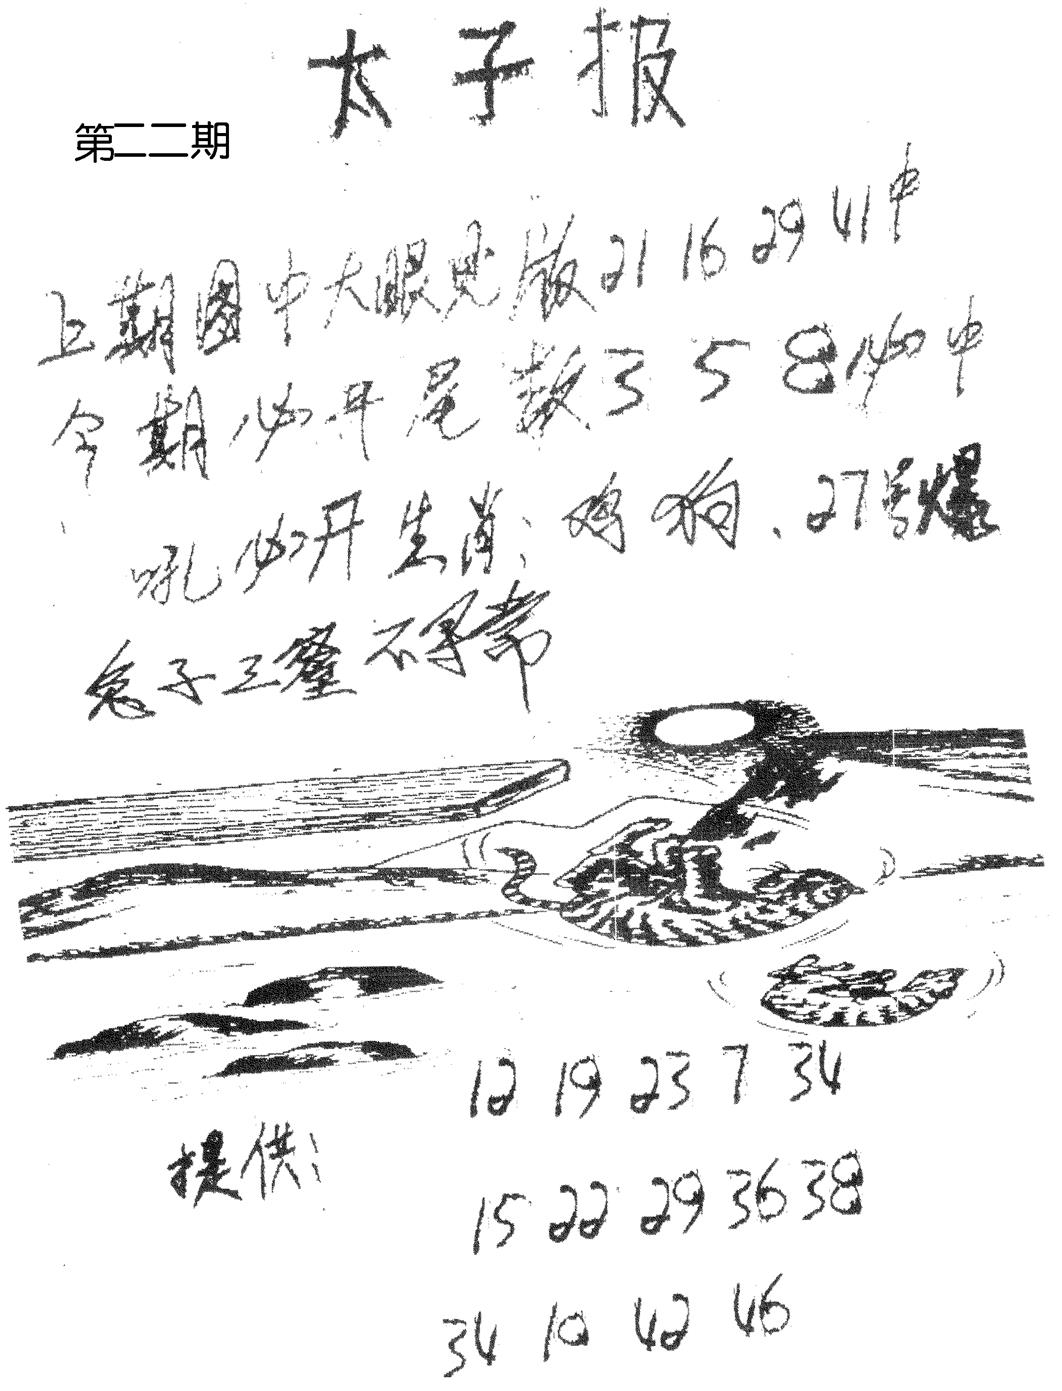 太子报
第二二期
上期图中大眼见版21 16 29 41中
今期必开尾数3 5 8必中
吼必开生肖:鸡狗、27号爆
兔子三窿不寻常
12 19 23 7 34
提供:
15 22 29 36 38
34 10 42 46